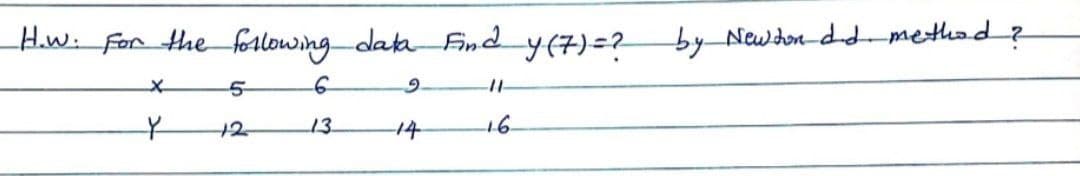 H.w: For the following data Find y(7)=? by Newton d.d. method ?
X 5 6 9 11
Y 12 13 14 16